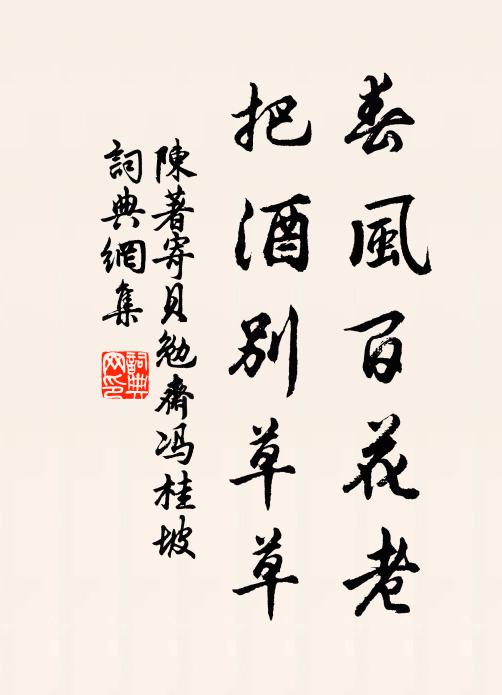 春風百花老
把酒別草草
陳著寄貝勉齋馮桂坡
詞典網集
詞典网印